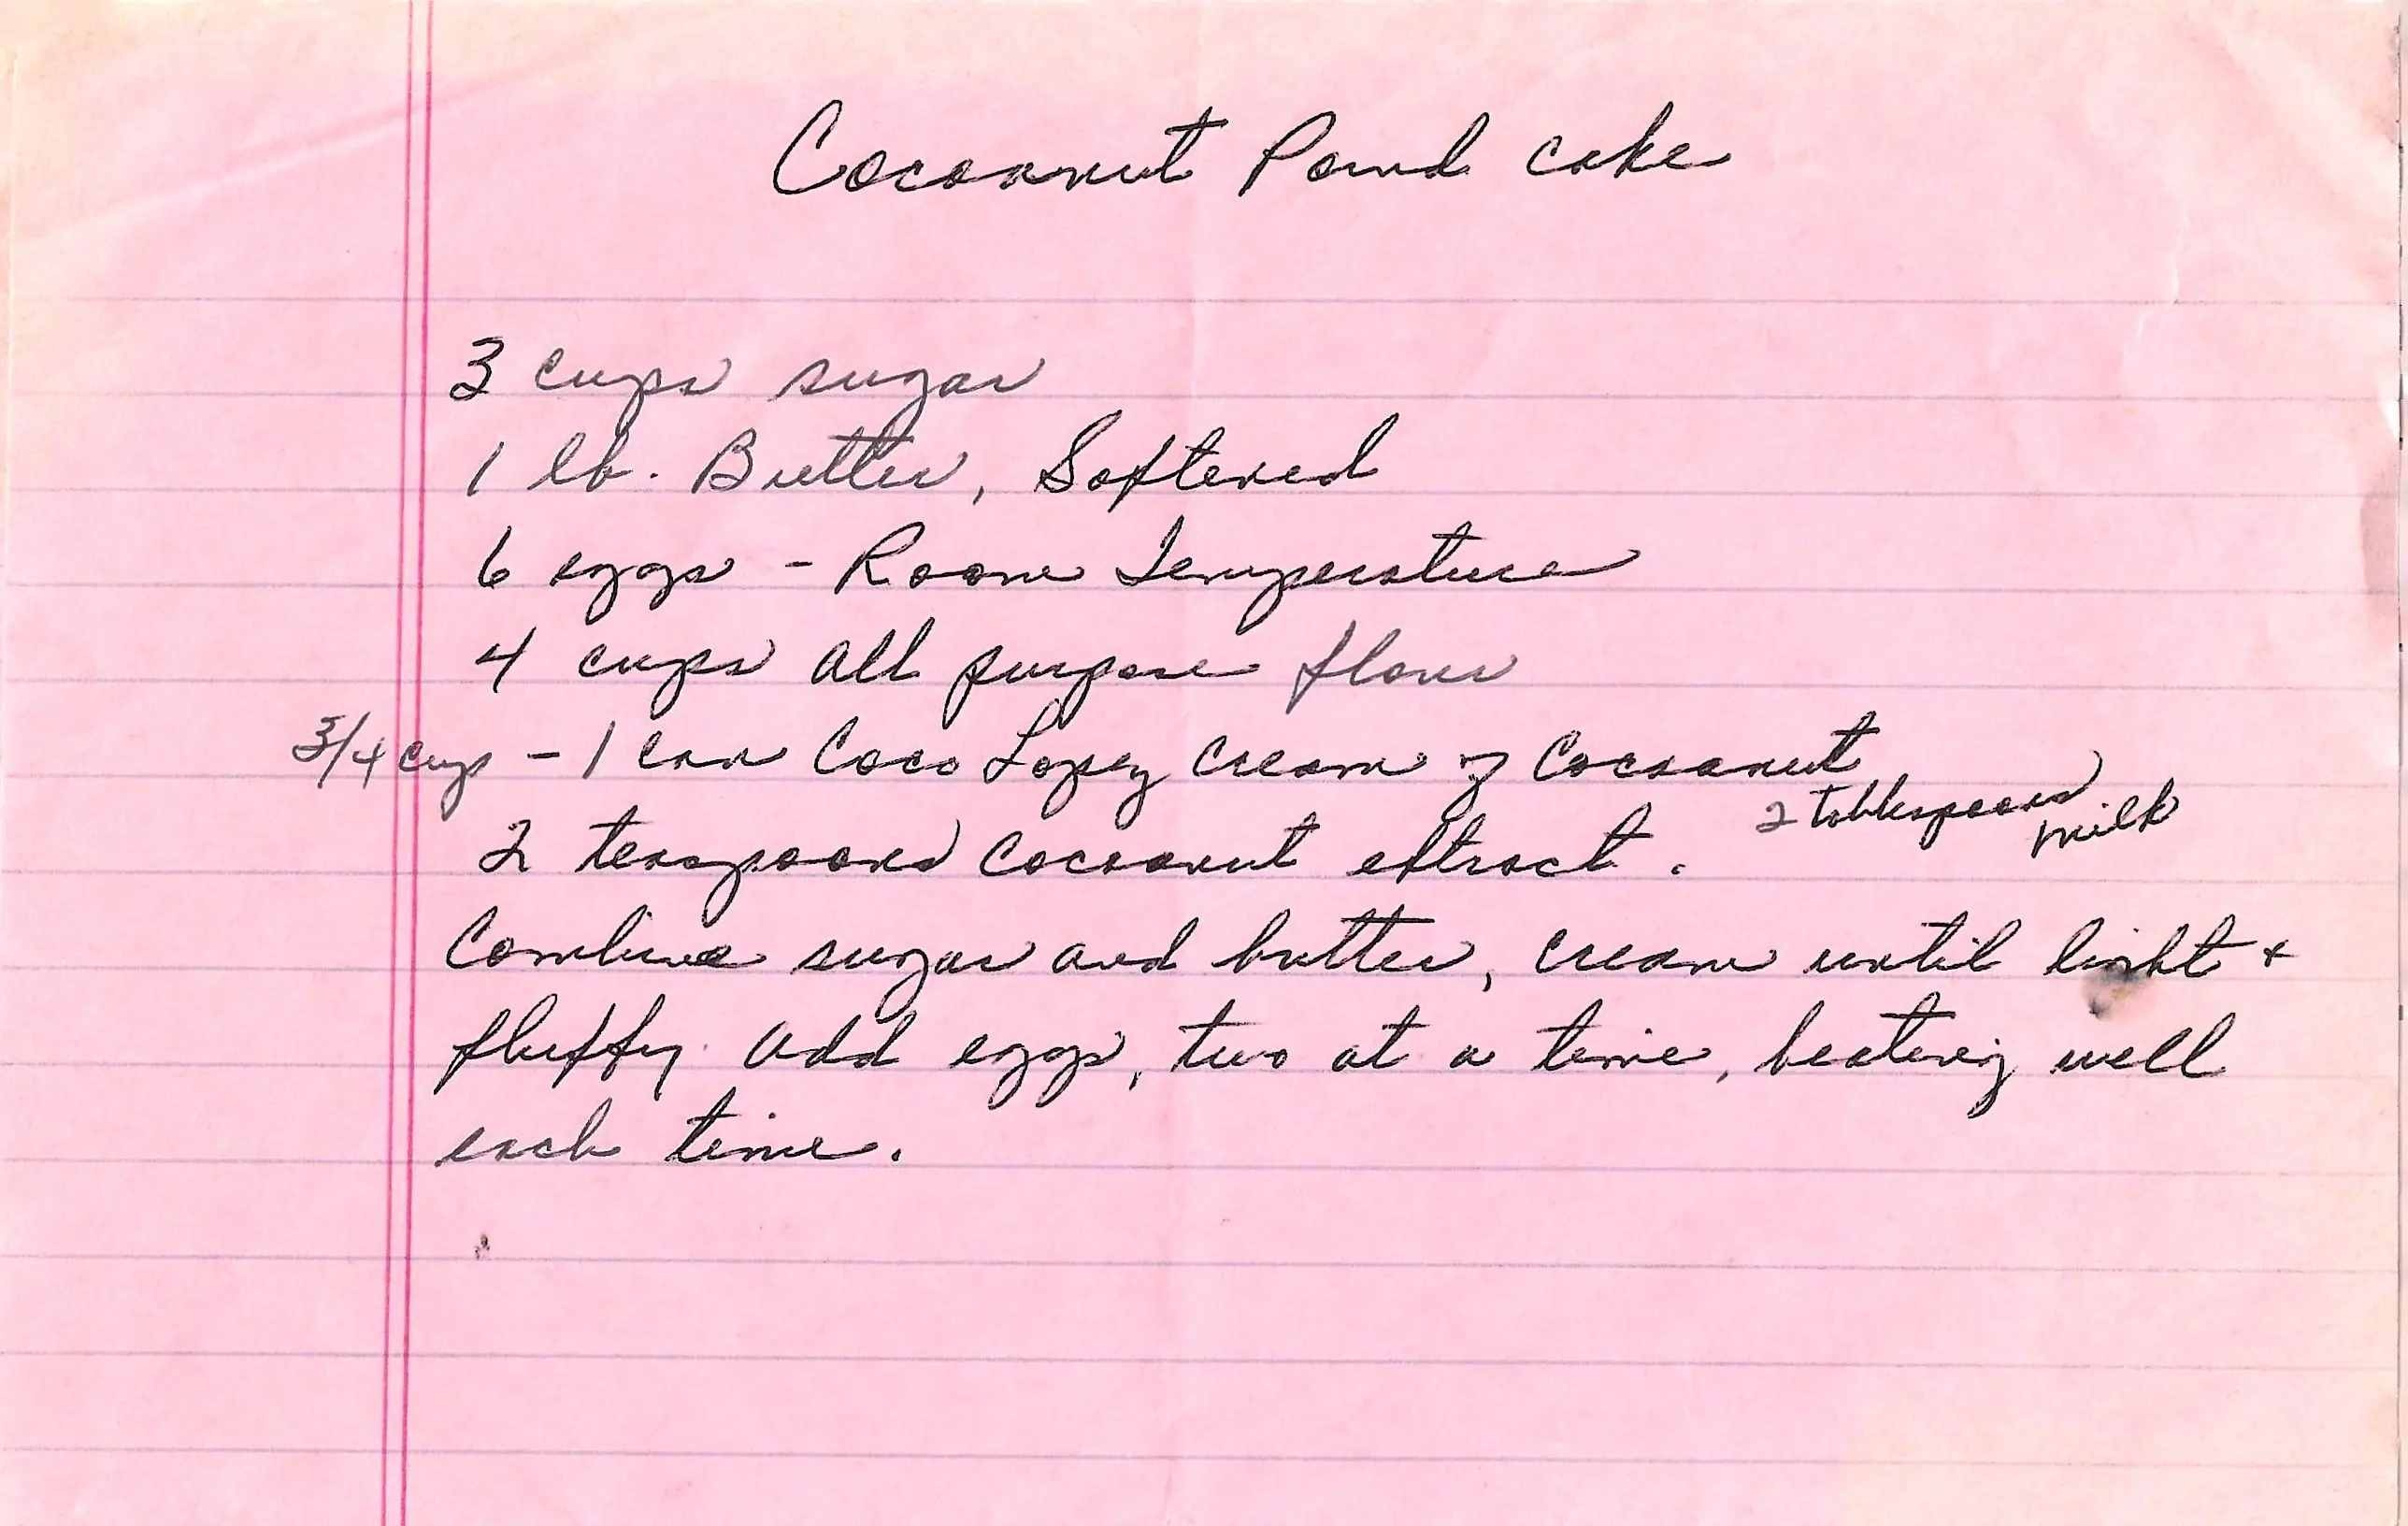 Cocoanut Pound cake
3 cups sugar
1 lb. Butter, Softened
6 eggs - Room Temperature
4 cups all purpose flour
3/4 cup - 1 can Coco Lopez Cream of Cocoanut
2 tablespoons milk
2 teaspoons Cocoanut extract.
Combine sugar and butter, cream until light +
fluffy. Add eggs, two at a time, beating well
each time.